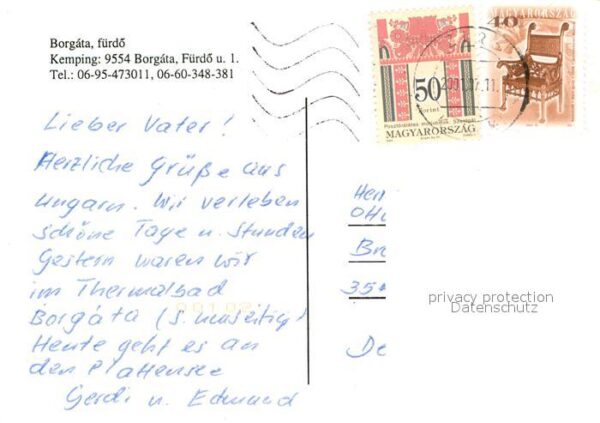 Borgáta, fürdő
Kemping: 9554 Borgáta, Fürdő u. 1.
Tel.: 06-95-473011, 06-60-348-381
50
Forint
MAGYARORSZÁG
40
MAGYARORSZÁG
2001.07.11.
Lieber Vater!
Herzliche Grüße aus
Ungarn. Wir verleben
schöne Tage u. Stunden
Gestern waren wir
im Thermalbad
Borgáta (s. umseitig)
Heute geht es an
den Plattensee
Gerdi u. Edmund
Her
Br
35
De
privacy protection
Datenschutz